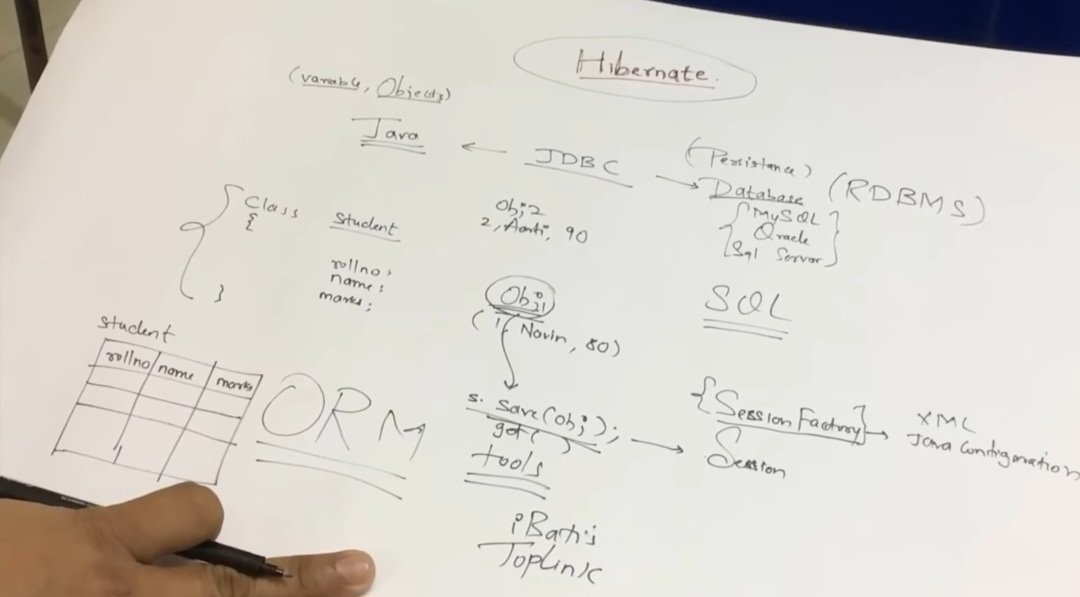 Hibernate.
(variable, Objects)
Java ← JDBC → Database (RDBMS)
(Persistance)
{ MySQL }
Oracle
Sql Server
SQL
Class Student
{
rollno;
name;
marks;
}
Obj2
2, Aarti, 90
Obj1
(1, Navin, 80)
student
rollno name marks
ORM
s. save(obj);
get( )
tools
iBatis
Toplink
{Session Factory} → XML
Java Configuration
Session